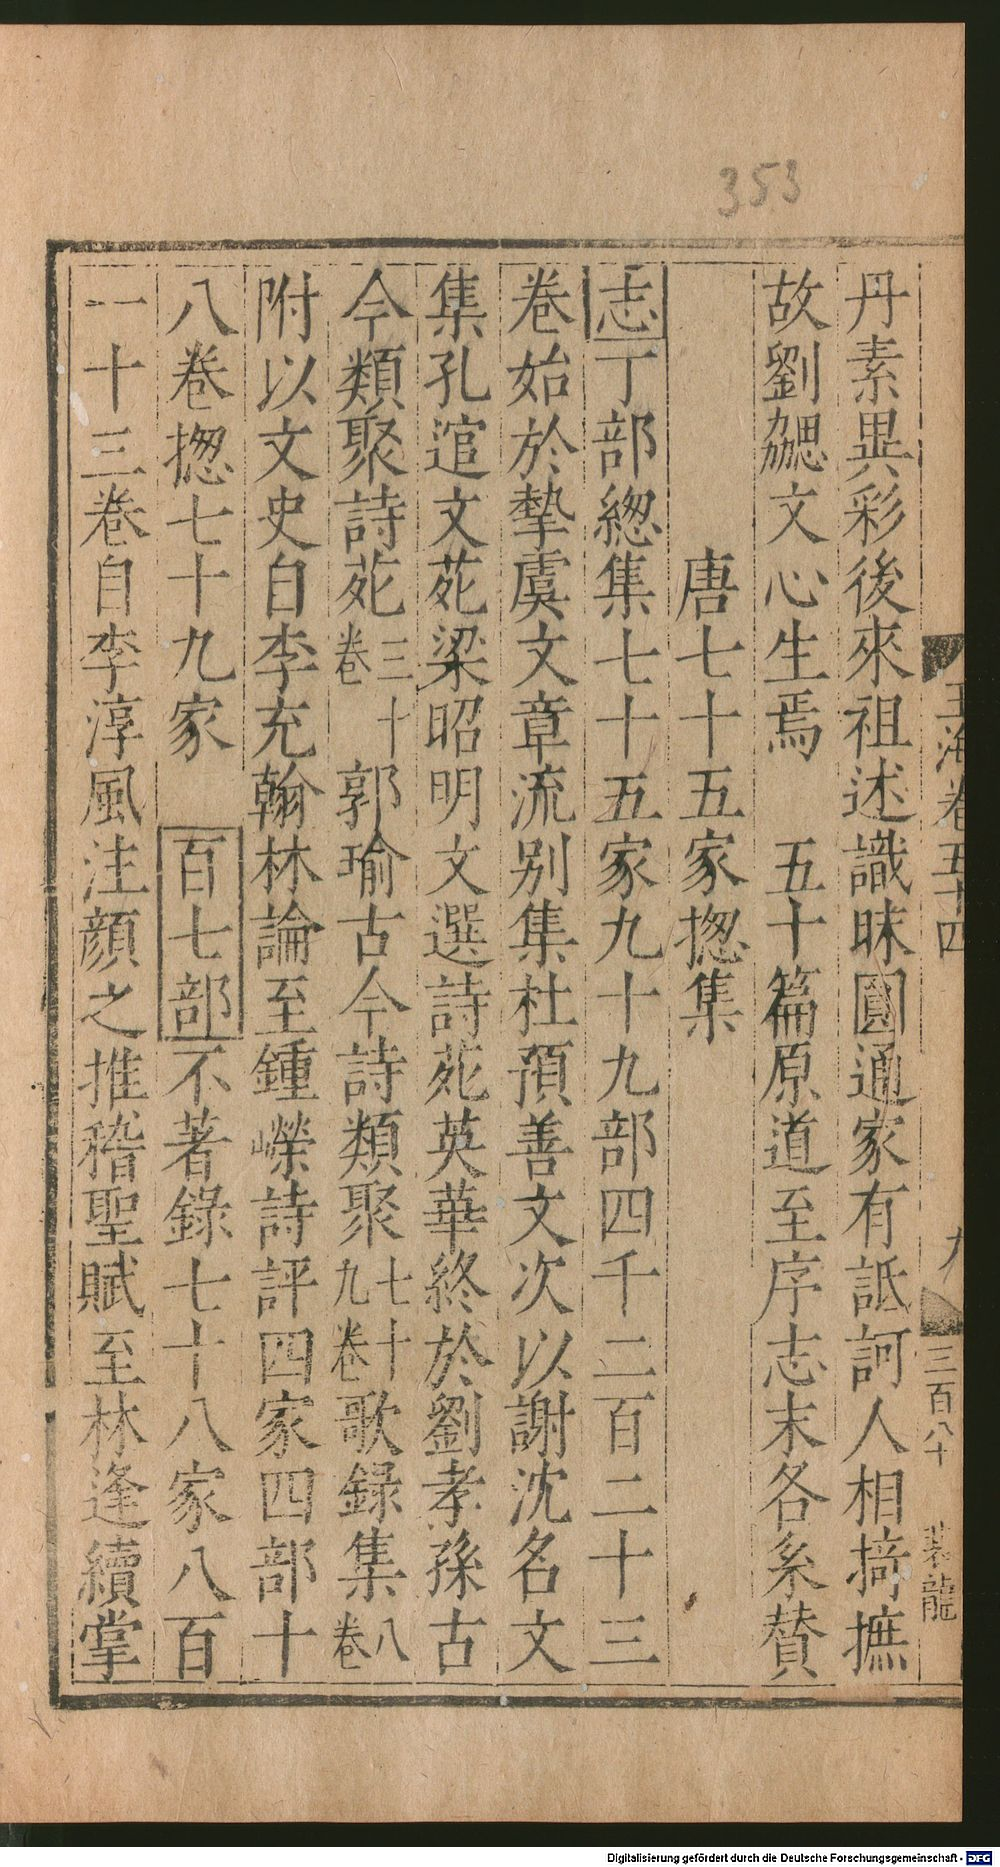 353
玉海卷五十四
九
三百八十
裴龍
丹素異彩後來祖述識昧圓通家有詆訶人相掎摭
故劉勰文心生焉　五十篇原道至序志末各系賛
唐七十五家揔集
志丁部緫集七十五家九十九部四千二百二十三
卷始於摯虞文章流別集杜預善文次以謝沈名文
集孔逭文苑梁昭明文選詩苑英華終於劉孝孫古
今類聚詩苑三十卷郭瑜古今詩類聚七十九卷歌録集八卷
附以文史自李充翰林論至鍾嶸詩評四家四部十
八卷揔七十九家　百七部不著錄七十八家八百
一十三卷自李淳風注顔之推稽聖賦至林逢續掌
Digitalisierung gefördert durch die Deutsche Forschungsgemeinschaft - DFG